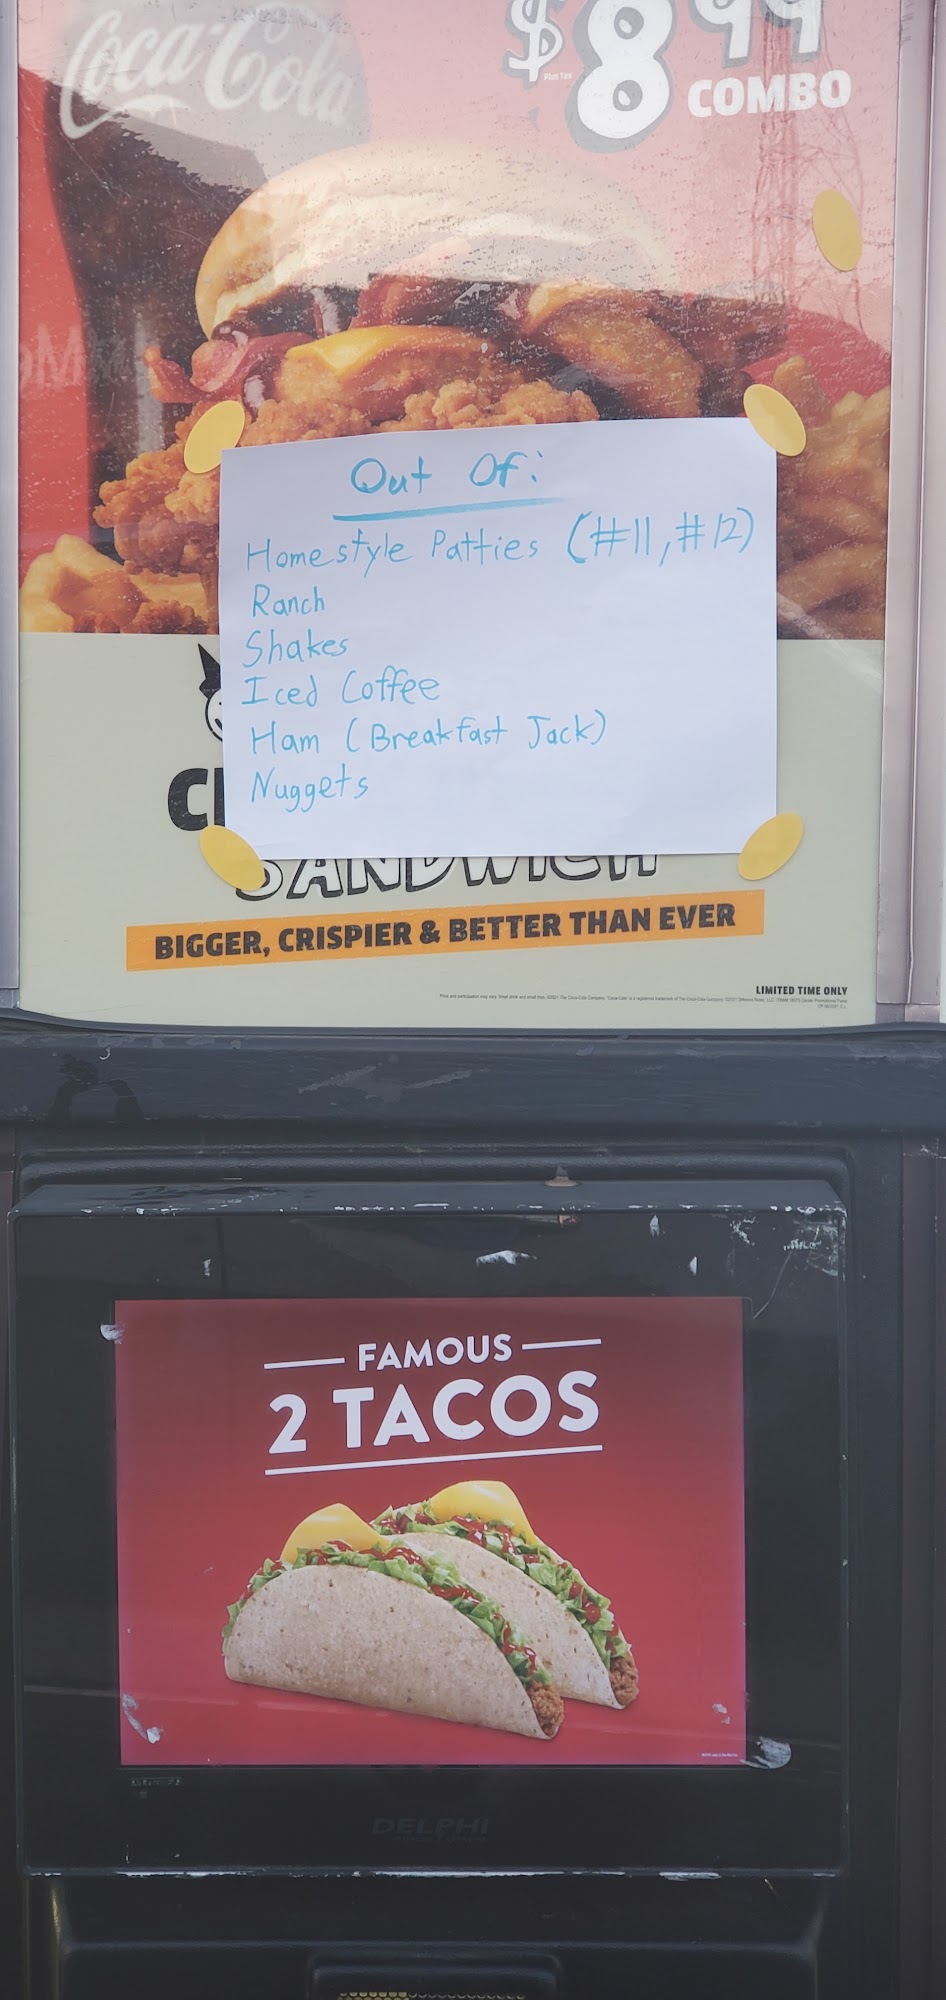 Coca-Cola
$8 99
Plus Tax
COMBO
Out Of:
Homestyle Patties (#11, #12)
Ranch
Shakes
Iced Coffee
Ham (Breakfast Jack)
Nuggets
SANDWICH
BIGGER, CRISPIER & BETTER THAN EVER
LIMITED TIME ONLY
FAMOUS
2 TACOS
DELPHI